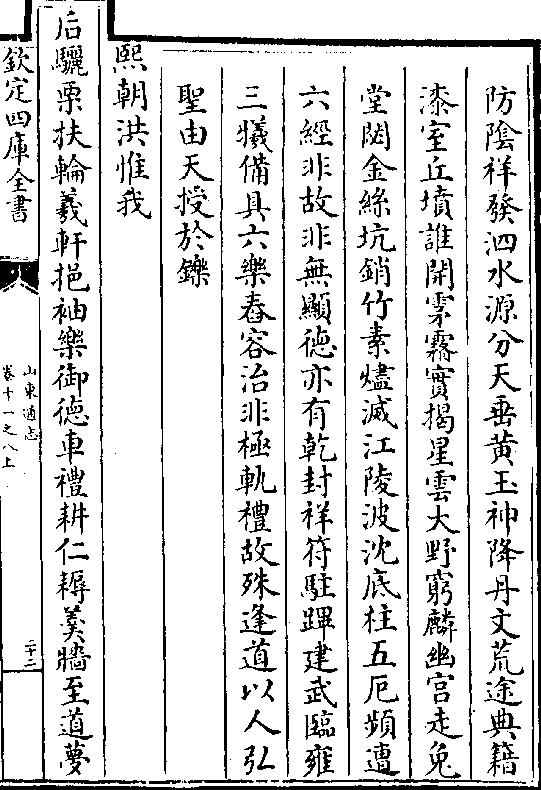 防陰祥發泗水源分天垂黄玉神降丹文荒途典籍
漆室丘墳誰開雺霧實揭星雲大野窮麟幽宫走兔
堂閟金絲坑銷竹素燼滅江陵波沈底柱五厄頻遭
六經非故非無顯德亦有乾封祥符駐蹕建武臨雍
三犧備具六樂舂容治非極軌禮故殊逢道以人弘
聖由天授於鑠
熙朝洪惟我
后驪栗扶輪羲軒挹袖樂御德車禮耕仁耨羮牆至道夢
欽定四庫全書
山東通志
卷十一之八上
二十二